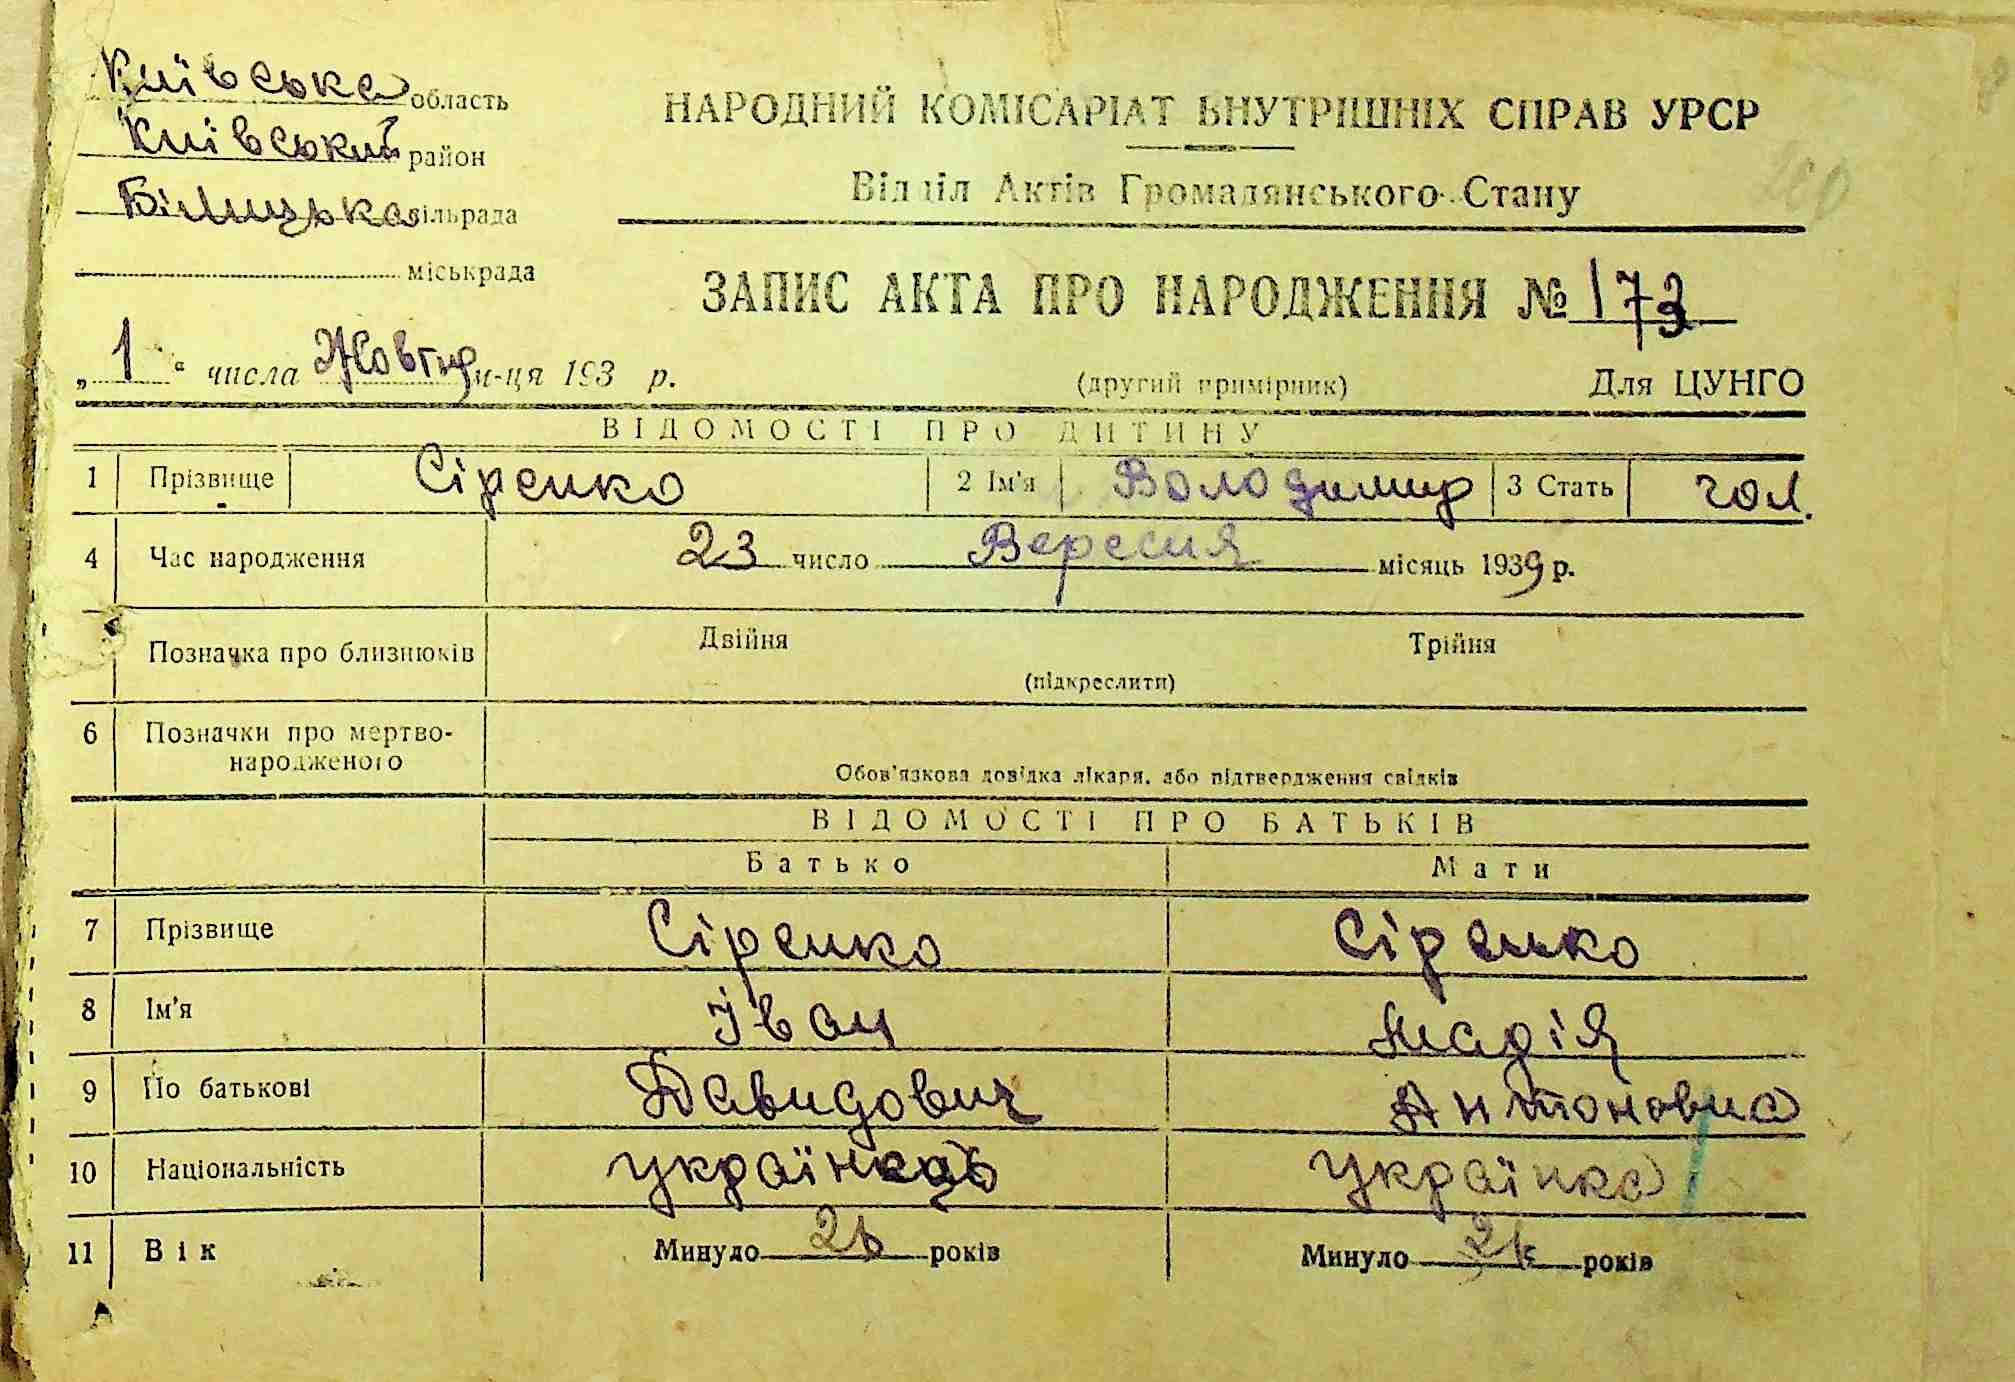 Київська область
Київський район
Білицька сільрада
міськрада
НАРОДНИЙ КОМІСАРІАТ ВНУТРІШНІХ СПРАВ УРСР
Відділ Актів Громадянського Стану
ЗАПИС АКТА ПРО НАРОДЖЕННЯ № 173
„1“ числа Жовтня м-ця 193 р.
(другий примірник) Для ЦУНГО
ВІДОМОСТІ ПРО ДИТИНУ
1 Прізвище Сіренко 2 Ім'я Володимир 3 Стать чол.
4 Час народження 23 число Вересня місяць 1939 р.
Позначка про близнюків Двійня Трійня
(підкреслити)
6 Позначки про мертво-
народженого
Обов'язкова довідка лікаря, або підтвердження свідків
ВІДОМОСТІ ПРО БАТЬКІВ
Батько Мати
7 Прізвище Сіренко Сіренко
8 Ім'я Іван Марія
9 По батькові Давидович Антоновна
10 Національність українець українка
11 Вік Минуло років Минуло років